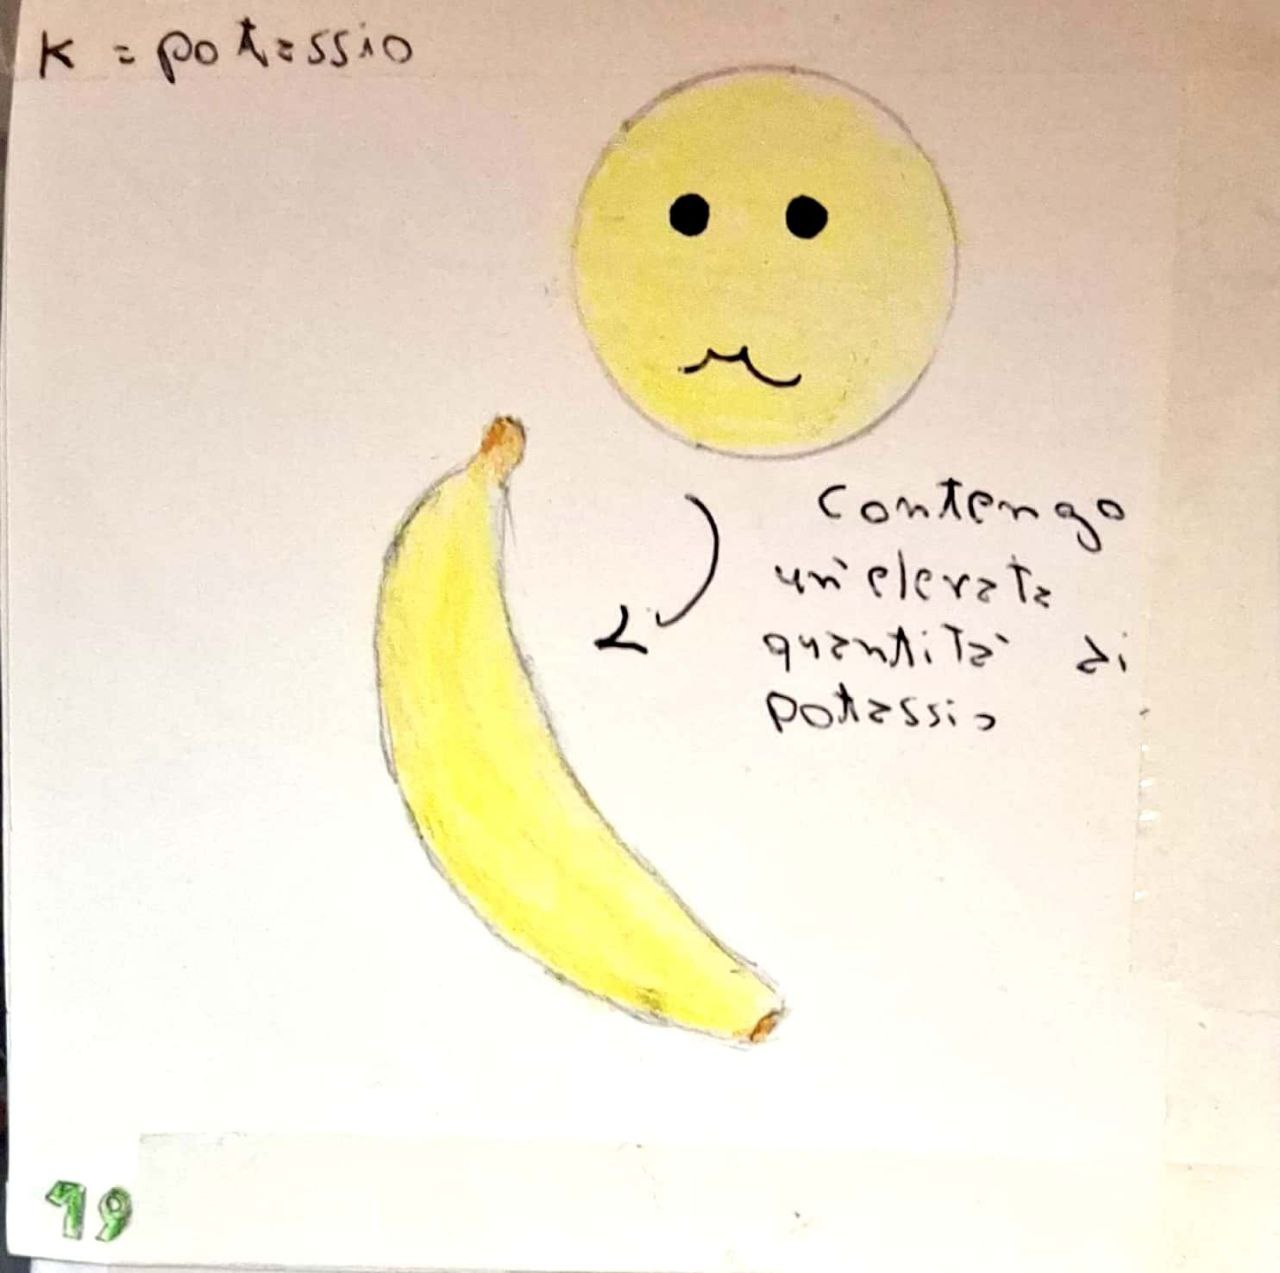 K = potassio
Contengo
un'elevata
quantità di
potassio
19